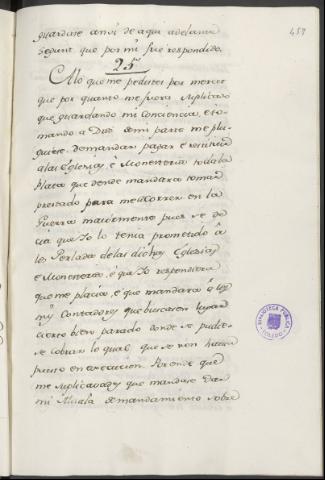 guardase ansi de aqui adelante
segunt que por mi fue respondido.
25
A lo que me pedistes por merced
que por quanto me fuera suplicado
que guardando mi conciencia, é to-
mando a Dios de mi parte me plu-
guiese demandar pagar é restituir
alas Iglesias, é Monesterios toda la
plata que dende mandara tomar
prestado para me socorrer en la
Guerra mayormente pues se de-
cia que Yo lo tenia prometido á
los Perlados delas dichas Iglesias
é Monesterios, é que Yo respondiera
que me placia, é que mandara á los
mis Contadores que buscasen lugar
cierto bien parado donde se pudie-
se cobrar lo qual que se non havia
puesto en execucion. Por ende que
me suplicavades que mandase dar
mi Alvala é mandamiento sobre
457
BIBLIOTECA PÚBLICA
TOLEDO